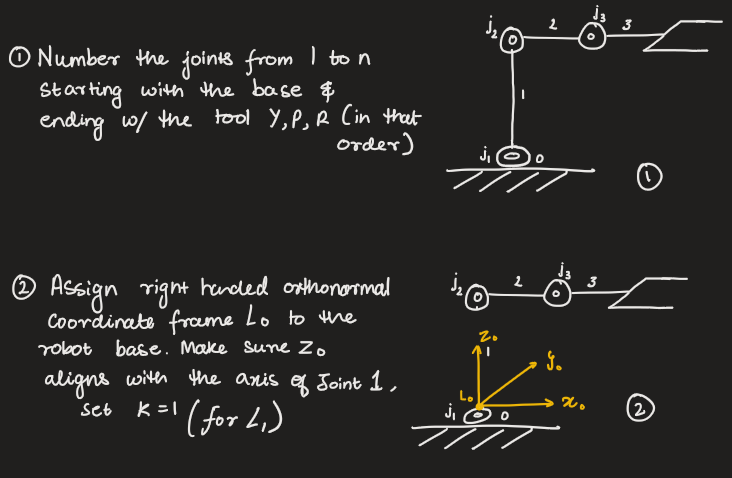 ① Number the joints from 1 to n
starting with the base &
ending w/ the tool Y, P, R (in that
order)
j₂ 2 j₃ 3
1
j₁ 0
①
② Assign right handed orthonormal
coordinate frame L₀ to the
robot base. Make sure Z₀
aligns with the axis of Joint 1,
set k = 1 (for L₁)
j₂ 2 j₃ 3
Z₀
1 y₀
L₀ x₀
j₁ 0
②